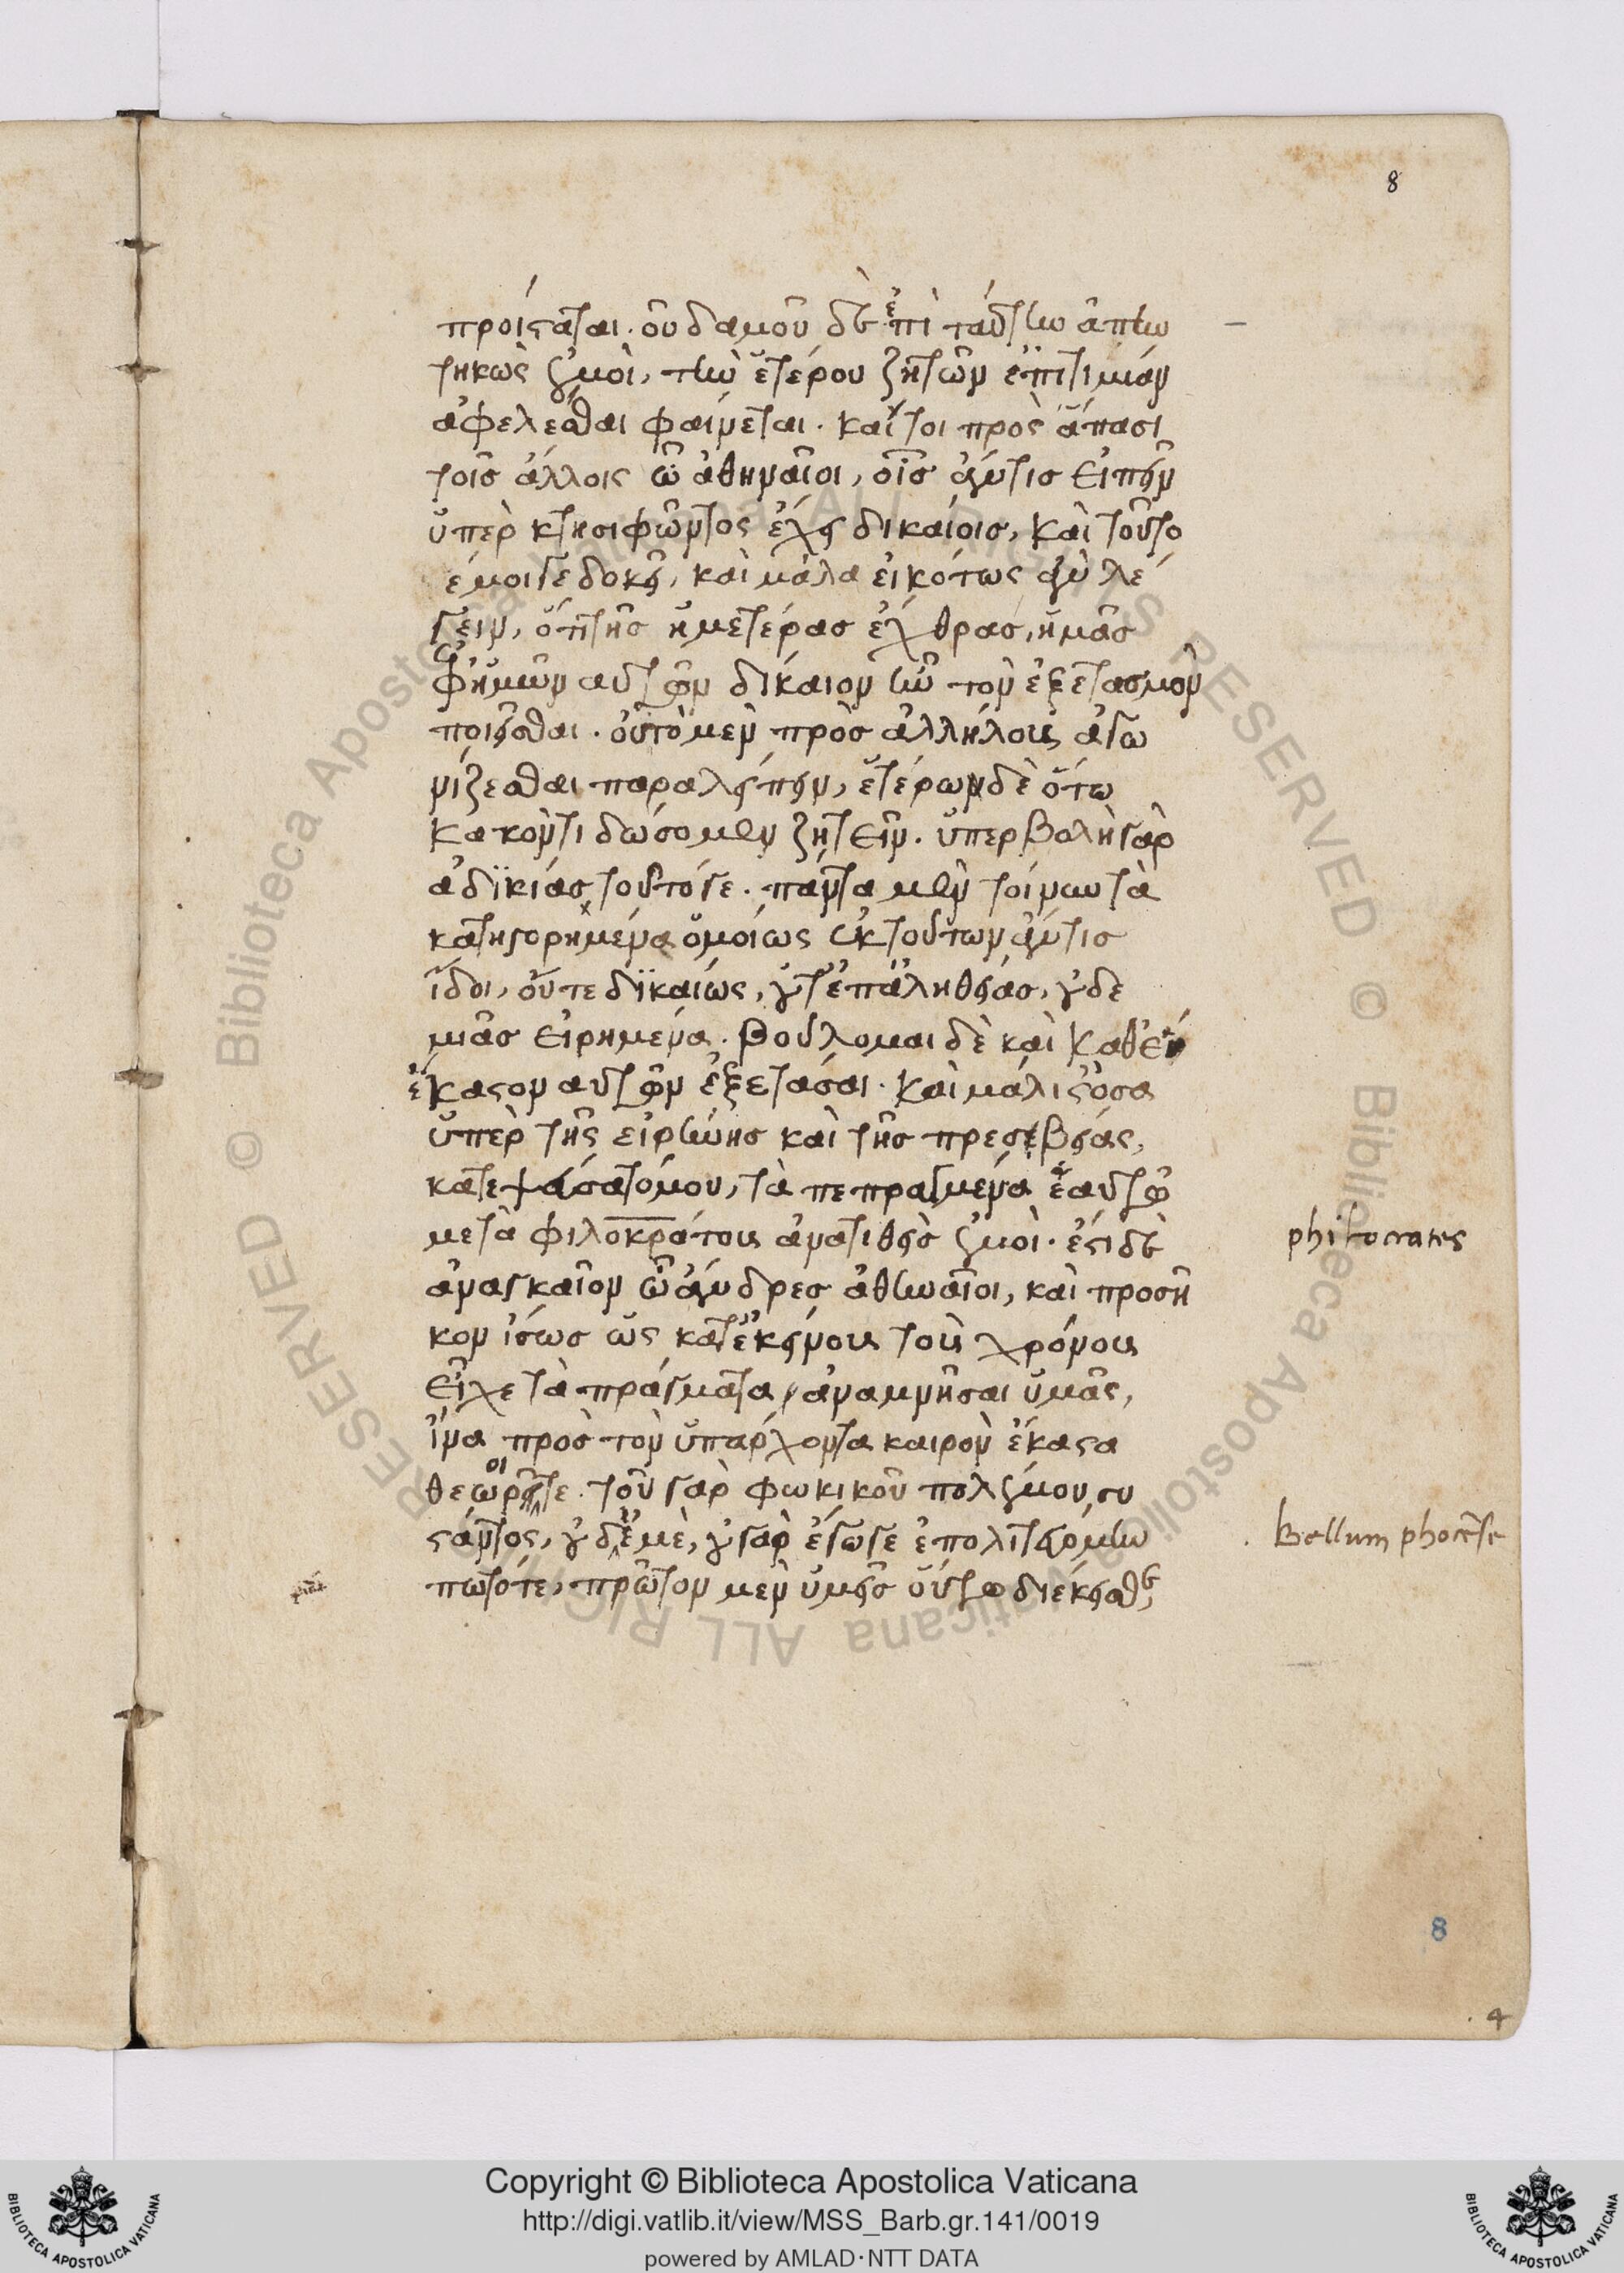 8
προίσταται. οὐδαμοῦ δὲ ἐπὶ ταύτην ἀπην
τηκὼς ἐμοὶ, τὴν ἑτέρου ζητῶν ἐπιτιμίαν
ἀφελέσθαι φαίνεται. καίτοι πρὸς ἅπασι
τοῖς ἄλλοις ὦ ἀθηναῖοι, οἷς ἄν τις εἰπεῖν
ὑπὲρ κτησιφῶντος ἔχει δικαίοις, καὶ τοῦτο
ἔμοιγε δοκεῖ, καὶ μάλα εἰκότως ἂν λέ
γειν, ὅτι τῆς ἡμετέρας ἔχθρας, ἡμᾶς
ἐφ ἡμῶν αὐτῶν δίκαιον ἦν τὸν ἐξετασμὸν
ποιεῖσθαι. οὐ τὸ μὲν πρὸς ἀλλήλους ἀγω
νίζεσθαι παραλείπειν, ἑτέρων δὲ ὅτω
κακόν τι δώσομεν ζητεῖν. ὑπερβολὴ γὰρ
ἀδϊκίας τοῦτό γε. πάντα μὲν τοίνυν τὰ
κατηγορημένα ὁμοίως ἐκ τούτων ἄν τις
ἴδοι, οὔτε δϊκαίως, οὔτ' ἐπ' ἀληθείας, οὐδε
μιᾶς εἰρημένα. βούλομαι δὲ καὶ καθ' ἓν
ἕκαστον αὐτῶν ἐξετάσαι. καὶ μάλισθ' ὅσα
ὑπὲρ τῆς εἰρήνης καὶ τῆς πρεσβείας,
κατεψεύσατό μου, τὰ πεπραγμένα ἑαυτῶ
μετὰ φιλοκράτους ἀνατιθεὶς ἐμοὶ. ἔστι δὲ
philocrates
ἀναγκαῖον ὦ ἄνδρες ἀθηναῖοι, καὶ προσῆ
κον ἴσως ὡς κατ' ἐκείνους τοὺς χρόνους
εἶχε τὰ πράγματα, ἀναμνῆσαι ὑμᾶς,
ἵνα πρὸς τὸν ὑπάρχοντα καιρὸν ἕκαστα
θεωροῖτε. τοῦ γὰρ φωκικοῦ πολέμου συ
στάντος, οὐ δι' ἐμὲ, οὐ γὰρ ἔγωγε ἐπολιτευόμην
Bellum phocēse
πω τότε, πρῶτον μὲν ὑμεῖς οὕτω διέκεισθε,
8
4
Copyright © Biblioteca Apostolica Vaticana
http://digi.vatlib.it/view/MSS_Barb.gr.141/0019
powered by AMLAD·NTT DATA